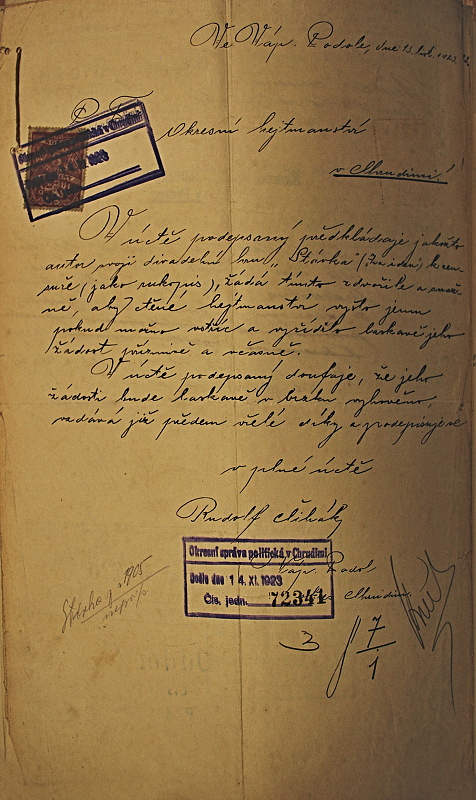 Ve Váp. Podole, dne 13. list. 1923.
P. T.
Okresní hejtmanství
v Chrudimi!
V úctě podepsaný předkládaje jakožto
autor svoji divadelní hru „Stávka" k cen-
suře (jako rukopis), žádá tímto zdvořile a snaž-
ně, aby ctěné hejtmanství vyšlo jemu
pokud možno vstříc a vyřídilo laskavě jeho
žádost příznivě a včasně.
V úctě podepsaný doufaje, že jeho
žádosti bude laskavě v brzku vyhověno,
vzdává již předem vřelé díky a podepisuje se
v plné úctě
Rudolf
Okresní správa politická v Chrudimi
Došlo dne 14. XI. 1923
Čís. jedn. 72341
Váp. Podol
Chrudim.
3
7
1